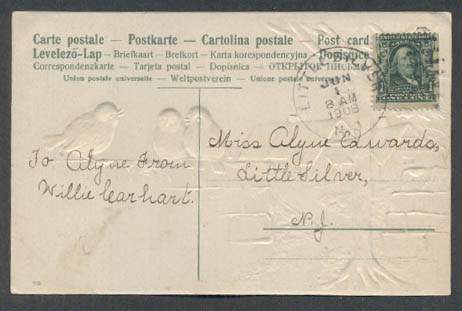 Carte postale — Postkarte — Cartolina postale — Post card
Levelező-Lap — Briefkaart — Brefkort — Karta korespondencyjna — Dopisnice
Correspondenzkarte — Tarjeta postal — Dopisnica — ОТКРЫТОЕ ПИСЬМО
Union postale universelle — Weltpostverein — Union postale universelle
LITTLE SILVER
JUN
1
8 AM
1908
N.J.
ONE CENT
To Alyne From
Willie Carhart.
Miss Alyne Edwards,
Little Silver,
N. J.